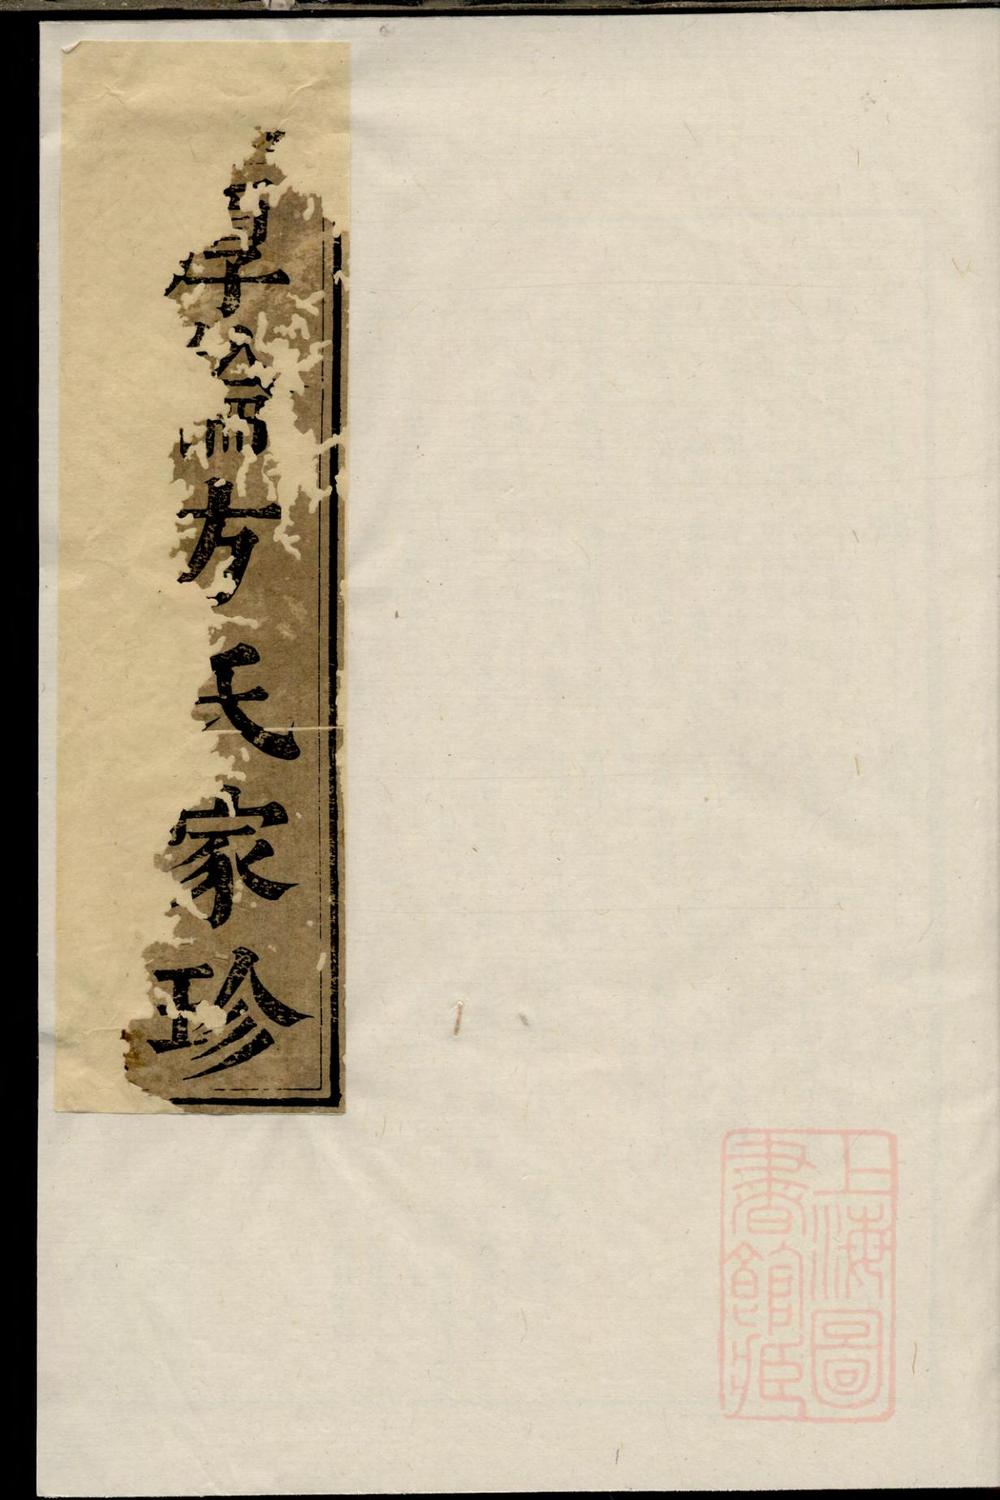 方氏家珍
上海圖
書館藏